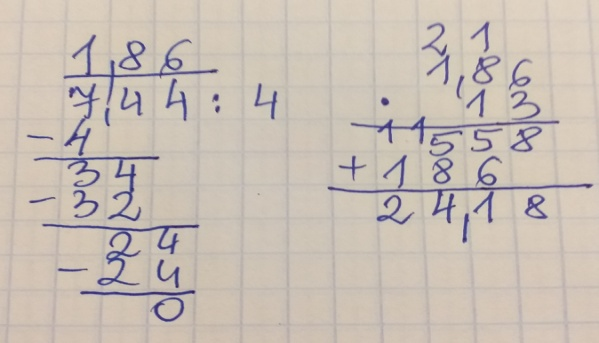 1,86
7,44 : 4
- 4
34
- 32
24
- 24
0
2 1
1,86
· 13
1 1
558
+ 186
24,18